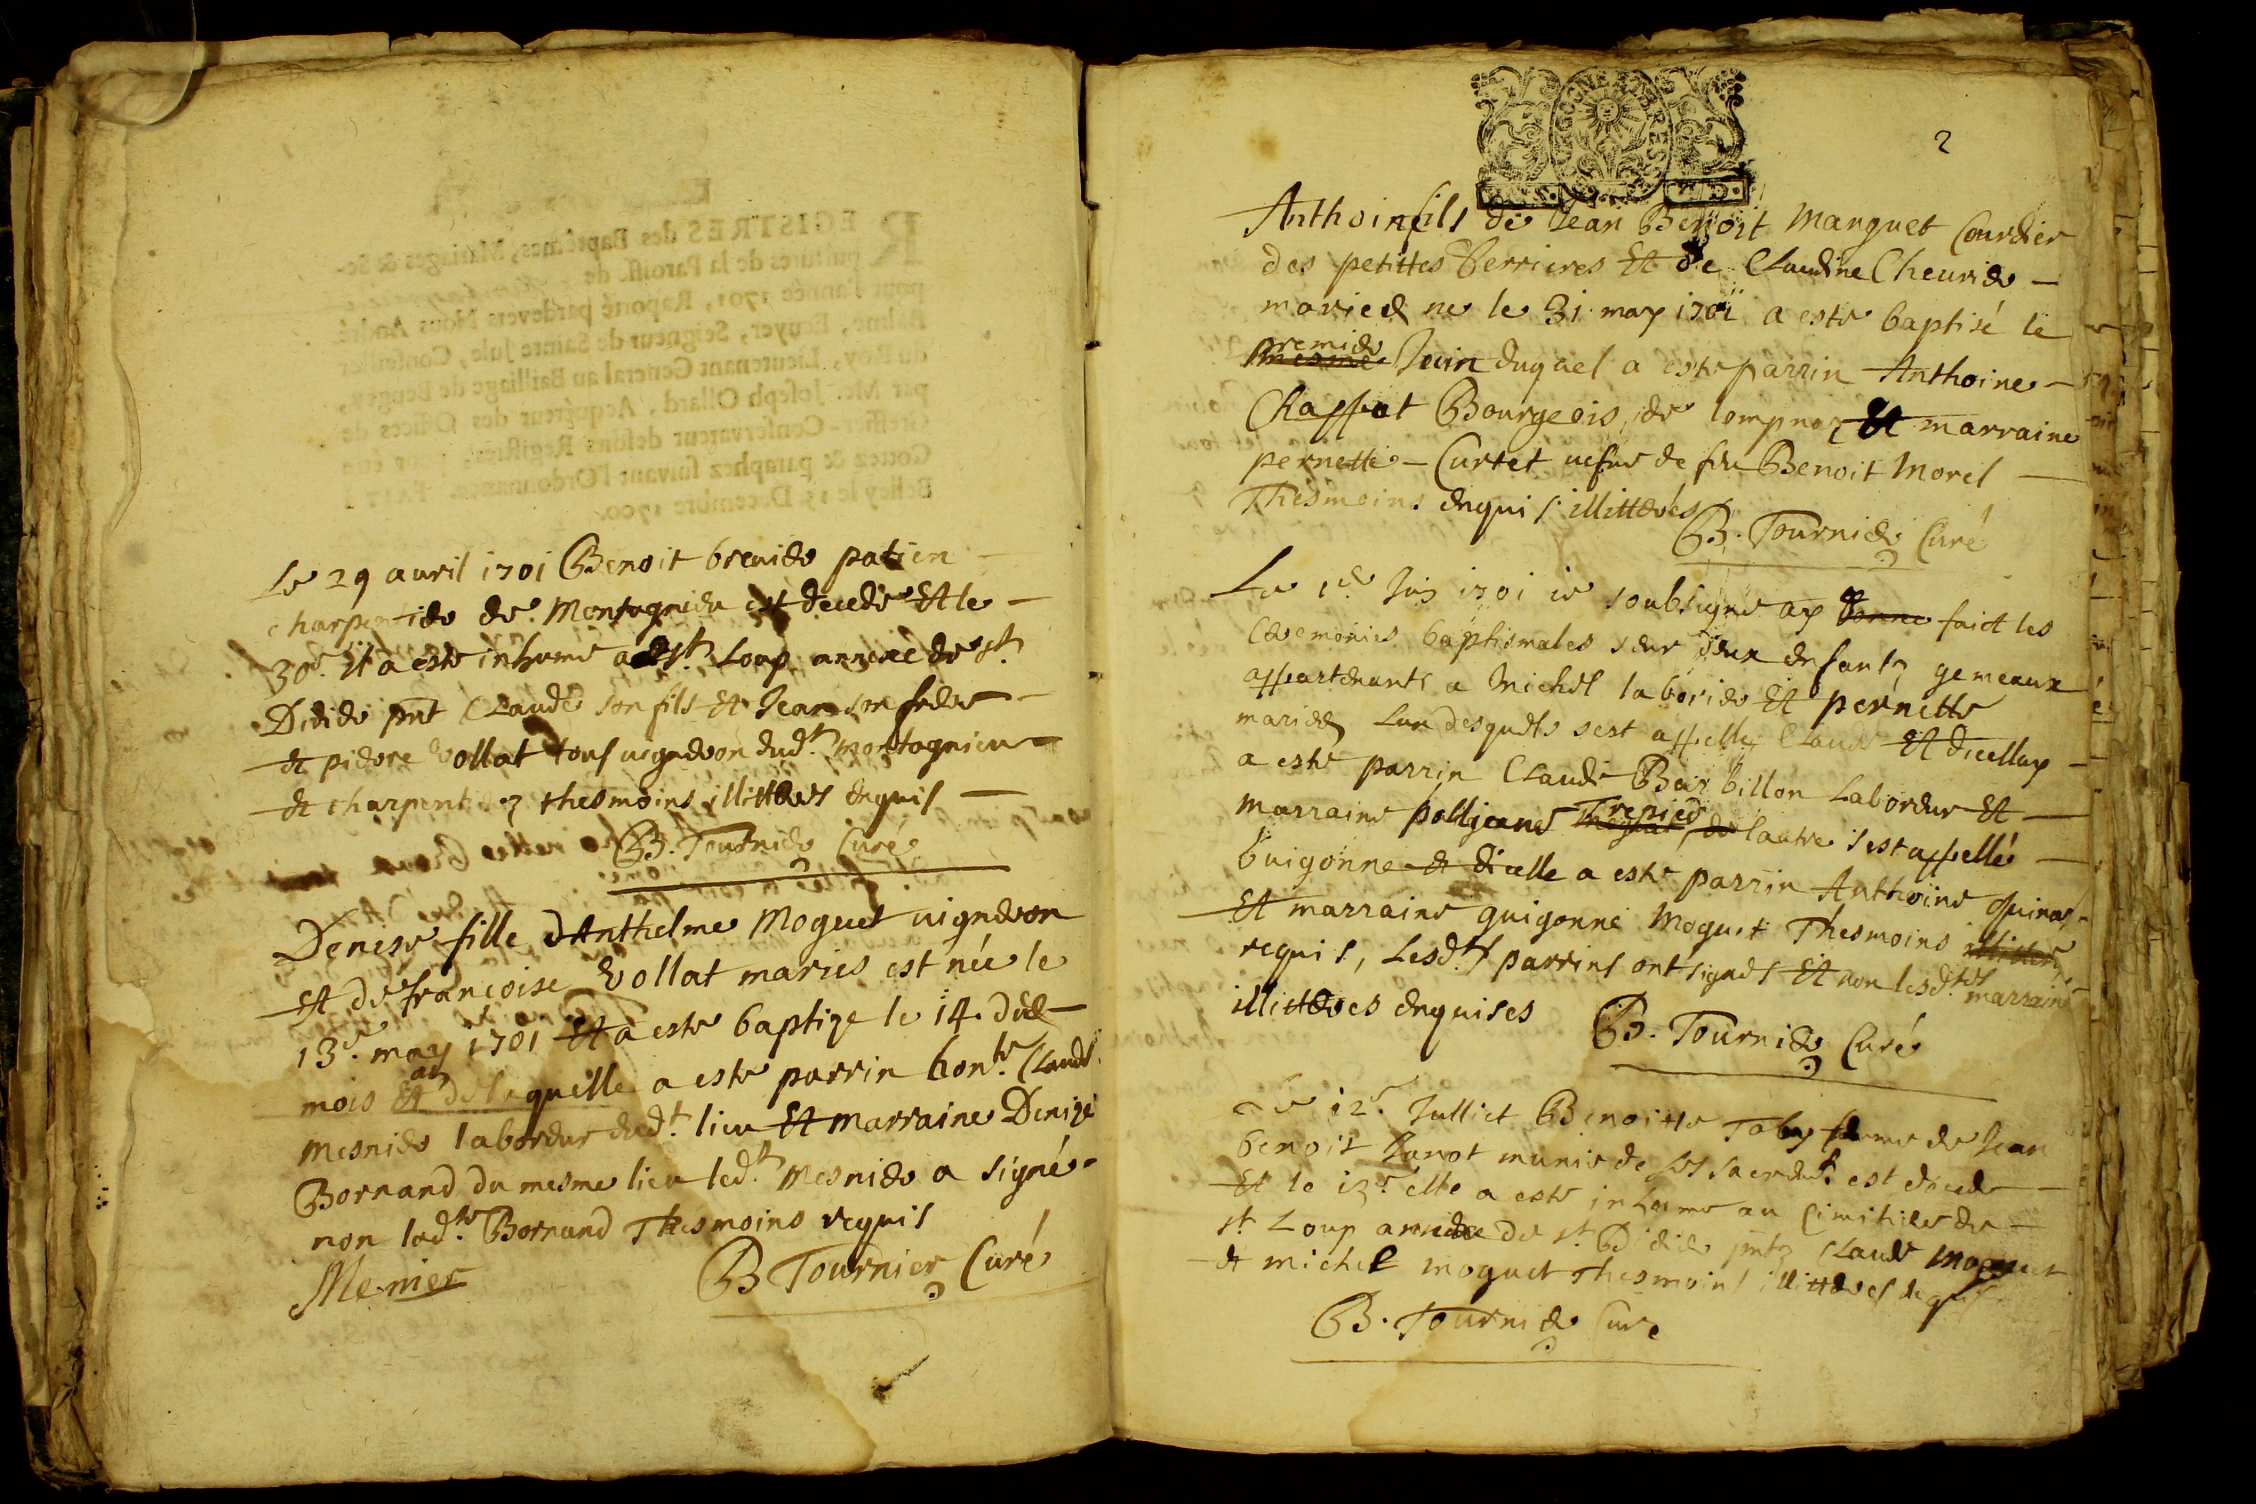 Le 29 avril 1701 Benoit brenier patien
charpentier de Montagnieu est decedé Et le
30e. Il a esté inhumé a st Loup annexe de st
Didier pnt Claude son fils Et Jean son frere
et pierre Vollat tous vigneron dudt montagnieu
et charpentier thesmoins illitteres enquis
B. Tournier Curé
Denise fille d'Anthelme Moguet vigneron
Et de françoise Vollat mariés est née le
13e. may 1701 Et a esté baptize le 14. dud
mois de laquelle a esté parrin honte. Claude
mesnier laboreur dudt. lieu Et marraine Denize
Bornand du mesme lieu ledt. mesnier a signé
non ladte. Bornand Thesmoins requis
Menier B Tournier Curé
2
Anthoin fils de Jean Benoit Marguet Courdier
des petittes Verrieres Et de Claudine Chevrier
mariez ne le 31 may 1701 a esté baptisé le
premier Juin duquel a esté parrin Anthoine
Chappat Bourgeois de lompnaz Et marraine
pernette Curtet vefve de feu Benoit Morel
Thesmoins enquis illitterés
B. Tournier Curé
Le 1er Juin 1701 ie soubsigné ay donne faict les
Ceremonies baptismales seur deux enfantz gemeaux
appartenants a Michel laborier Et pernette
mariez Lun desquels sest appellez Claude Et dicelluy
a esté parrin Claude Barbillon Laboreur Et
marraine pollijeane Trepied lautre sest appellé
Guigonne et dicelle a esté parrin Anthoine Quinat
Et marraine guigonne Moguet Thesmoins
requis, Lesdts parrins ont signés Et non lesdtes marraines
illitteres enquises
B. Tournier Curé
Le 12e. Julliet Benoitte Taby femme de Jean
benoit Lanot munie de ses sacremts est decede
Et le 13e elle a esté inhumé au Cimitiere de
st. Loup annexe de st. Didier pntz Claude Moguet
et michel moguet thesmoins illitteres enquis
B. Tournier Curé